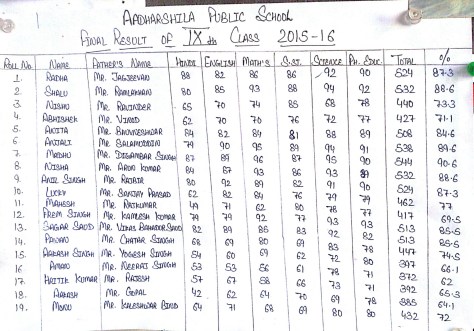 AADHARSHILA PUBLIC SCHOOL
FINAL RESULT OF IX th CLASS 2015-16
ROLL No. NAME FATHER'S NAME HINDI ENGLISH MATH'S S.ST. SCIENCE PH. EDUC. TOTAL %
1. RADHA MR. JAGJEEVAN 88 82 86 86 92 90 524 87.3
2. SHALU MR. RAMLAKHAN 80 85 93 88 94 92 532 88.6
3. NISHU MR. RAVINDER 65 70 74 85 68 78 440 73.3
4. ABHISHEK MR. VINOD 62 70 70 76 72 77 427 71.1
5. ANITA MR. BHUVNESHWAR 84 82 89 81 88 89 508 84.6
6. ANJALI MR. SALAMODDIN 79 90 95 89 94 91 538 89.6
7. MADHU MR. DIGAMBAR SINGH 87 89 96 87 95 90 544 90.6
8. NISHA MR. ARUN KUMAR 84 87 93 86 93 89 532 88.6
9. ANIL SINGH MR. RAJBIR 80 92 89 82 91 90 524 87.3
10. LUCKY MR. SANJAY PRASAD 62 82 84 76 79 79 462 77
11. MAHESH MR. RAJKUMAR 49 71 62 80 78 77 417 69.5
12. PREM SINGH MR. KAMLESH KUMAR 79 79 92 77 93 93 513 85.5
13. SAGAR SAUD MR. BAHADUR SAUD 82 89 85 83 92 82 513 85.5
14. PAWAN MR. CHATAR SINGH 68 69 80 69 83 78 447 74.5
15. AAKASH SINGH MR. YOGESH SINGH 54 60 69 62 72 80 397 66.1
16. AMAN MR. NEERAJ SINGH 53 53 56 61 78 71 372 62
17. HRITIK KUMAR MR. RAJESH 57 67 58 66 73 71 392 65.3
18. AAKASH MR. GOPAL 42 62 64 70 69 78 385 64.1
19. MONU MR. 64 71 68 69 80 80 432 72